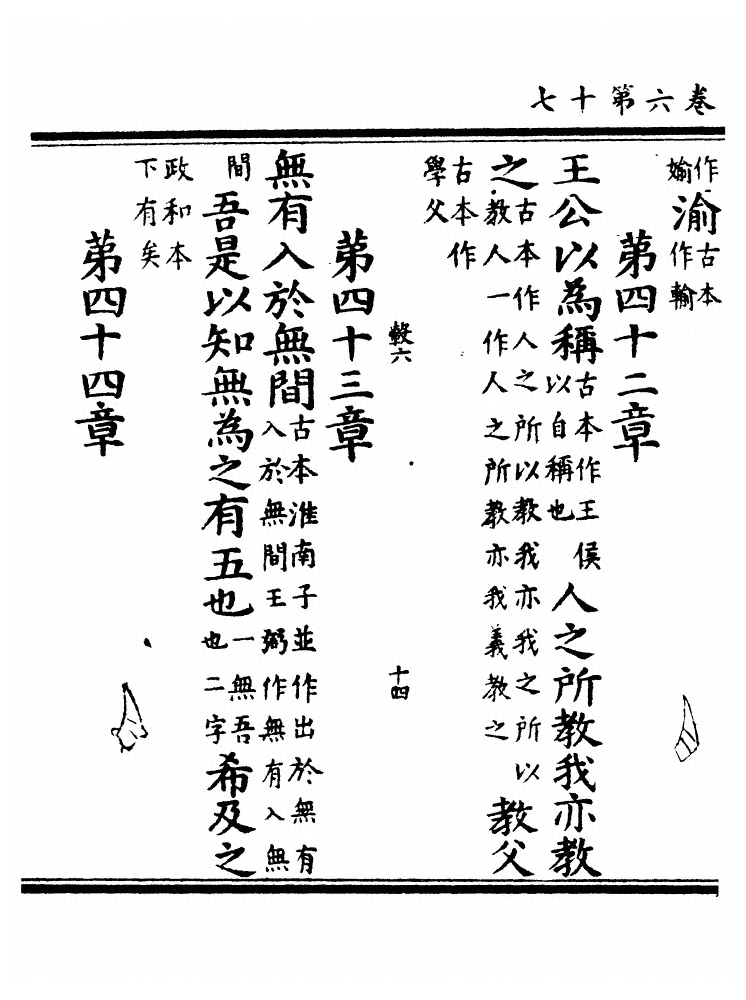 卷六第十七
作媮渝古本作輸
第四十二章
王公以為稱古本作王侯以自稱也人之所教我亦教
之古本作人之所以教我亦我之所以教人一作人之所教亦我義教之教父
古本作學父
轂六 十四
第四十三章
無有入於無間古本淮南子並作出於無有入於無間王弼作無有入無
間吾是以知無為之有五也一無吾也二字希及之
政和本下有矣
第四十四章